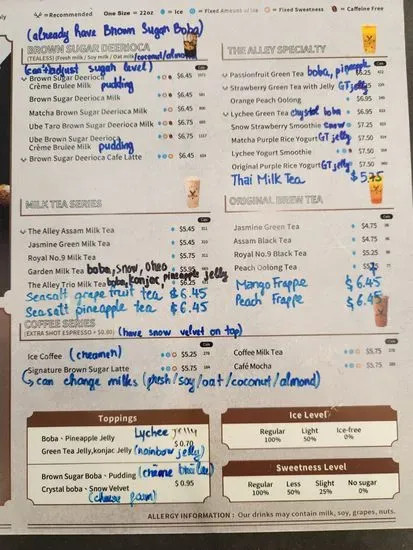 = Recommended One Size = 22oz = Ice = Fixed Amount of Ice = Fixed Sweetness = Caffeine Free
(already have Bhown Sugah Boba)
BROWN SUGAR DEERIOCA
(TEALESS) (Fresh milk / Soy milk / Oat milk /coconut/almond)
(can't adjust sugah level)
Brown Sugar Deerioca $6.45
Crème Brulee Milk pudding
Brown Sugar Deerioca Milk $6.45
Matcha Brown Sugar Deerioca Milk $6.45
Ube Taro Brown Sugar Deerioca Milk $6.75
Ube Brown Sugar Deerioca $6.75
Crème Brulee Milk pudding
Brown Sugar Deerioca Cafe Latte $6.45
THE ALLEY SPECIALTY
Passionfruit Green Tea boba, pineapple $6.25
Strawberry Green Tea with Jelly GT jelly
Orange Peach Oolong $6.95
Lychee Green Tea crystal boba $6.95
Snow Strawberry Smoothie snow $7.25
Matcha Purple Rice Yogurt GT jelly $7.50
Lychee Yogurt Smoothie $7.50
Original Purple Rice Yogurt GT jelly $7.50
Thai Milk Tea $5.75
MILK TEA SERIES
The Alley Assam Milk Tea $5.45
Jasmine Green Milk Tea $5.45
Royal No.9 Milk Tea $5.75
Garden Milk Tea boba, snow, oheo $5.95
The Alley Trio Milk Tea boba, konjac, pineapple jelly $6.25
Seasalt grapefruit tea $6.45
Seasalt pineapple tea $6.45
ORIGINAL BREW TEA
Jasmine Green Tea $4.75
Assam Black Tea $4.75
Royal No.9 Black Tea $5.25
Peach Oolong Tea
Mango Frappe $6.45
Peach Frappe $6.45
COFFEE SERIES
(EXTRA SHOT ESPRESSO + $0.80) (have snow velvet on top)
Ice Coffee (creameh) $5.25
Signature Brown Sugar Latte $5.75
Coffee Milk Tea $5.75
Café Mocha $5.75
↳ can change milks (fresh/soy/oat/coconut/almond)
Toppings
Boba、Pineapple Jelly Lychee jelly
Green Tea Jelly,konjac Jelly (rainbow jelly) $0.70
Brown Sugar Boba、Pudding (crème brûlée)
Crystal boba、Snow Velvet $0.95
(cheese foam)
Ice Level
Regular Light Ice-free
100% 50% 0%
Sweetness Level
Regular Less Slight No sugar
100% 50% 25% 0%
ALLERGY INFORMATION : Our drinks may contain milk, soy, grapes, nuts.